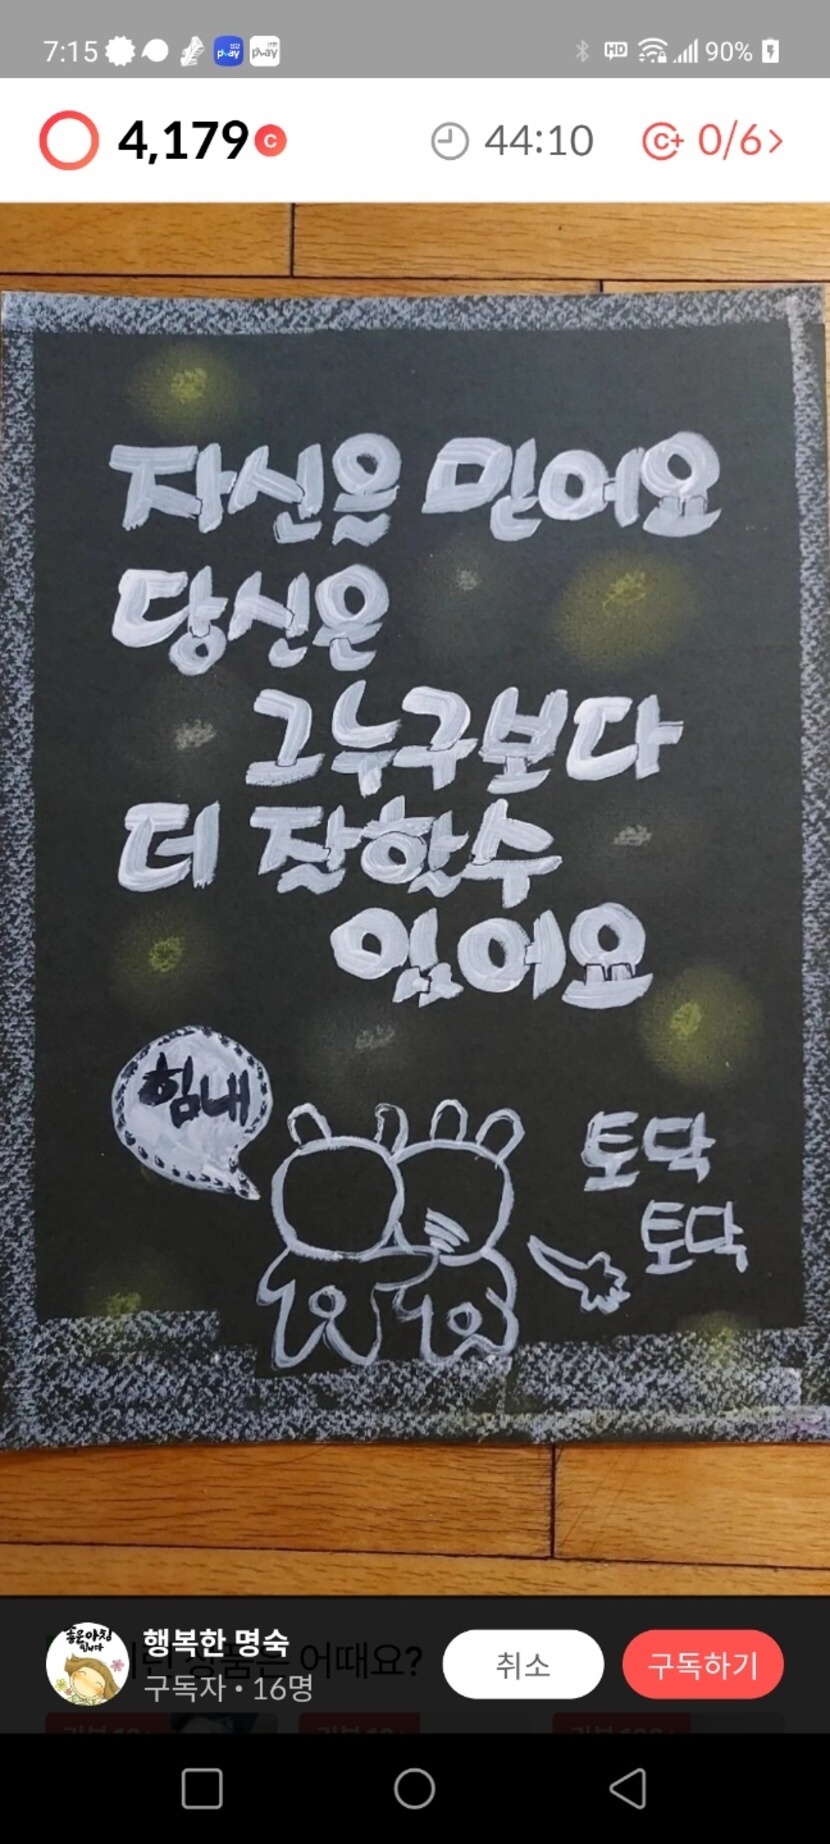 7:15
play
play
HD
90%
4,179 C
44:10
C+ 0/6 >
자신을 믿어요
당신은
그누구보다
더 잘할수
있어요
힘내
토닥
토닥
좋은아침
입니다
행복한 명숙
구독자 • 16명
어때요?
취소
구독하기